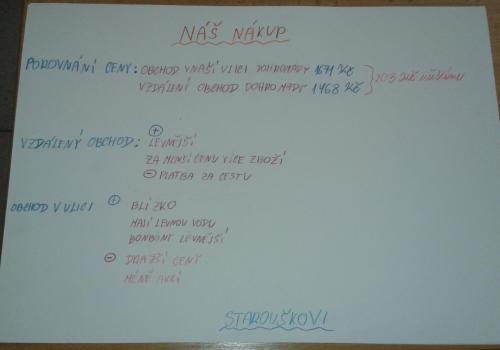 NÁŠ NÁKUP
POROVNÁNÍ CENY: OBCHOD V NAŠÍ ULICI DOHROMADY 1671 Kč
VZDÁLENÍ OBCHOD DOHROMADY 1468 Kč
203 Kč
VZDÁLENÝ OBCHOD: + LEVNĚJŠÍ
ZA MENŠÍ CENU VÍCE ZBOŽÍ
- PLATBA ZA CESTU
OBCHOD V ULICI + BLÍZKO
MAJÍ LEVNOU VODU
BONBONY LEVNĚJŠÍ
- DRAŽŠÍ CENY
MÉNĚ AKCÍ
STAROUŠKOVI